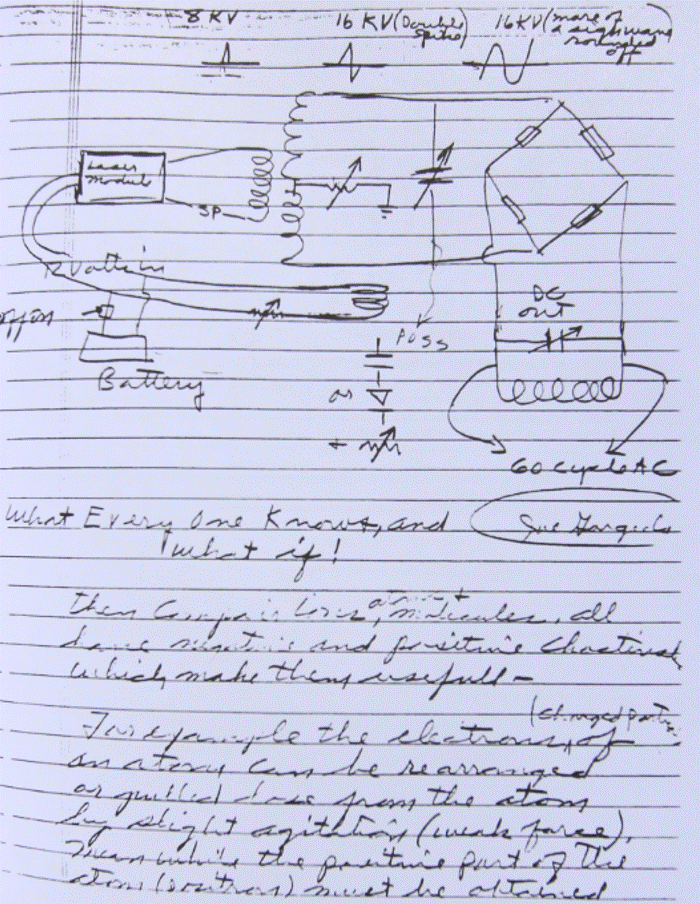 8 KV
16 KV (Double
spike)
16 KV (more of
a sign wave
rounded
off
Laser
Module
SP
12 Volts in
off/on
Battery
DC
out
Poss
or
+
60 Cycle AC
What Every One Knows, and
what if!
Then Compair Ions, atoms + molecules, all
have negative and positive
which make them usefull -
For example the electrons, of
(charged parts
an atom can be rearranged
or pulled loose from the atom
by slight agitation (weak force).
Mean while the positive part of the
atom (positrons) must be obtained